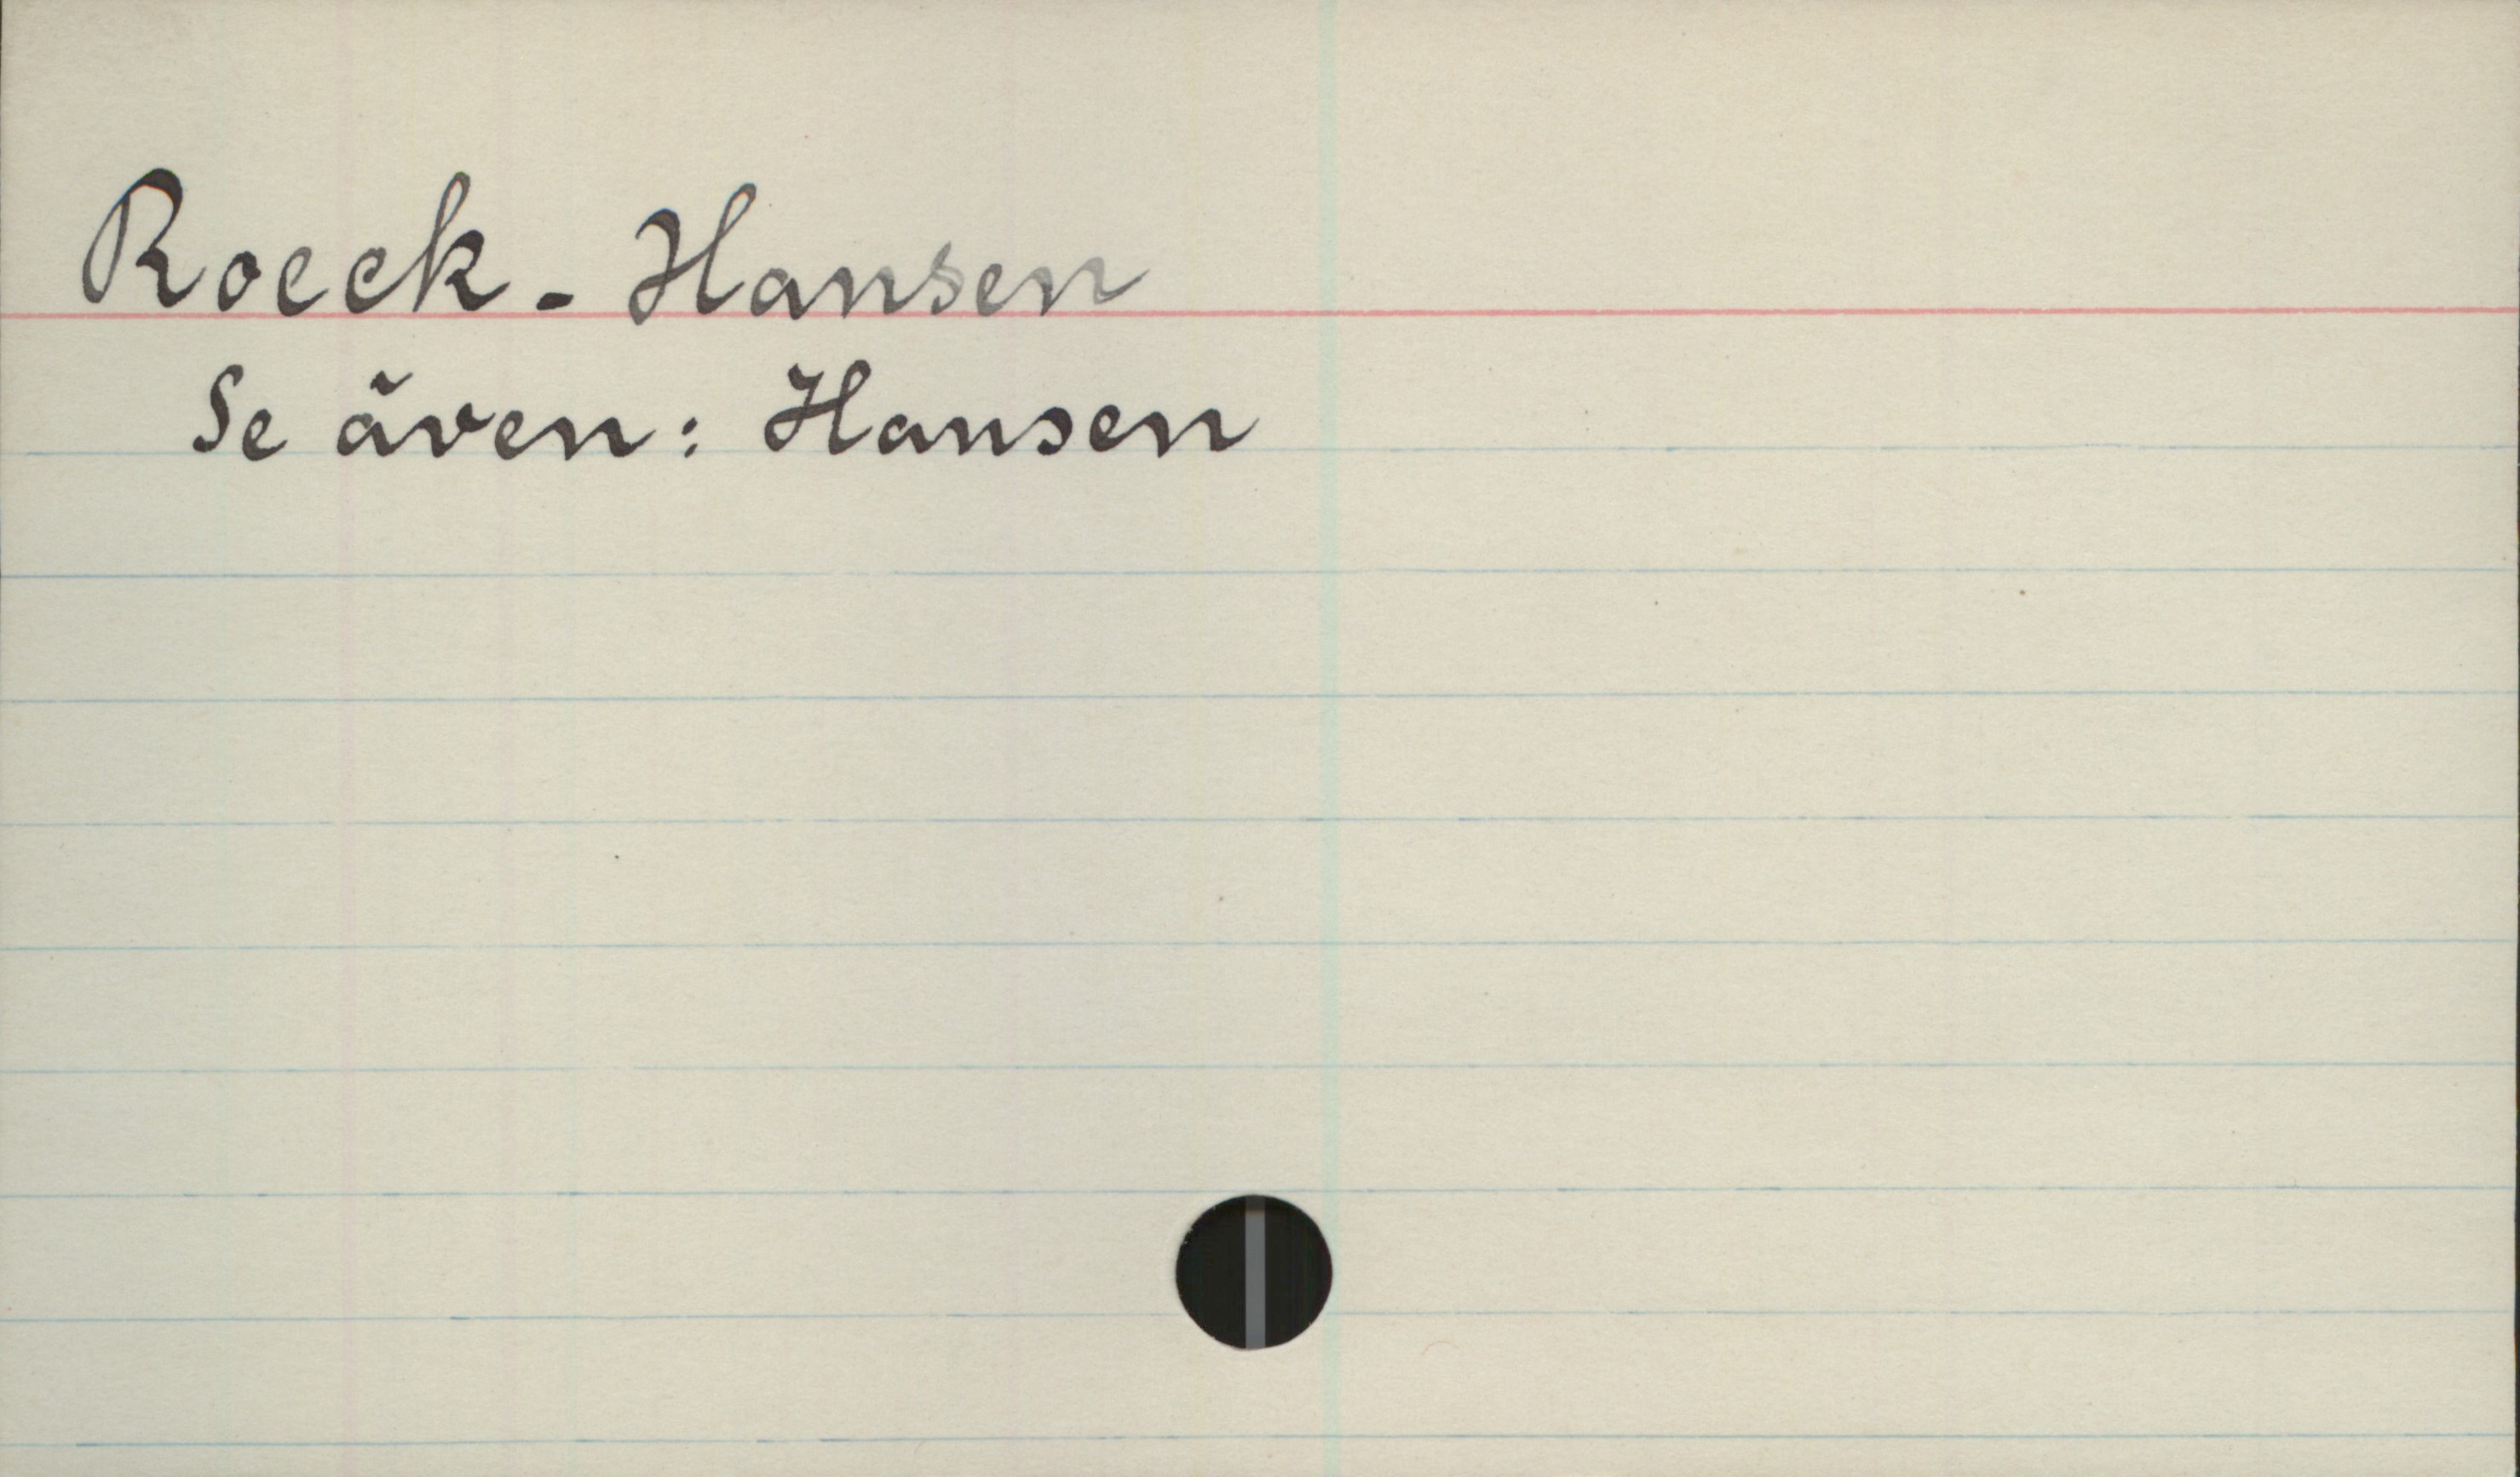 Roeck - Hansen
Se även: Hansen